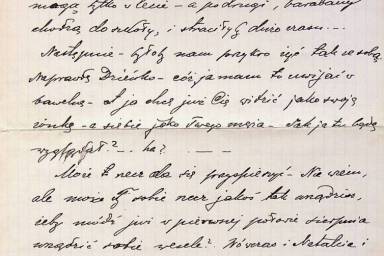 mogą tylko w lecie - a po drugi,
chodzą do szkoły, i straciłyby dużo czasu...
Następnie - byłoby nam przykro żyć tak ze sobą.
Naprawdę Dzieńko - cóż ja mam tu owijać w
bawełnę - I ja chcę już Cię widzieć jako swoją
żonkę - a siebie jako Twego męża - Jak ja tu będę
wyglądał?... ha? —
Może to nasz da się przyspieszyć - Nie wiem,
ale może Ty sobie nasz jakoś tak urządzim,
żeby módz już w pierwszej połowie sierpnia
urządzić sobie wesele? Wówczas i Natalcia i